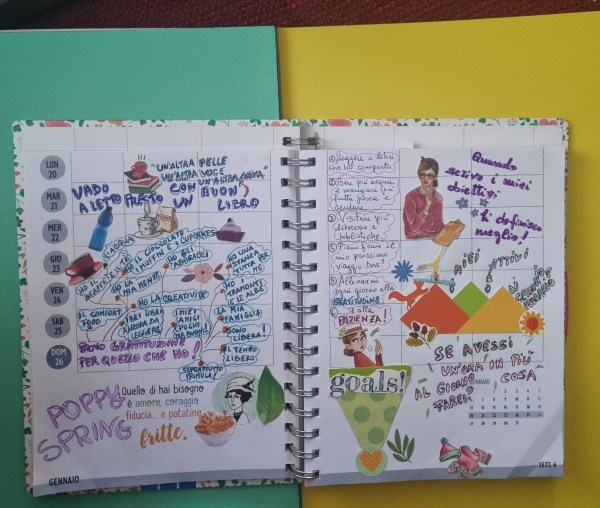 LUN
20
MAR
21
MER
22
GIO
23
VEN
24
SAB
25
DOM
26
UN'ALTRA PELLE
UN'ALTRA VOCE
UN'ALTRA ANIMA
VADO
A LETTO PRESTO CON UN BUON LIBRO
L'ACQUA
HO IL
CAFFÈ E
HO IL CIOCCOLATO
I MUFFIN E I CUPCAKES
HO LA MIA MENTE
HO I
ADORABILI
HO UNA
STANZA
TUTTA PER
ME
HO LA CREATIVITÀ
HO I
TRAMONTI
E LE ALBE
IL COMFORT
FOOD
LIBRI
ANCORA DA
LEGGERE
I MIEI
AMICI
POCHI
MA BUONI
LA MIA
FAMIGLIA
SONO
LIBERA!
IL TEMPO
LIBERO!
SOPRATTUTTO
PRIMULA!
PROVO GRATITUDINE
PER QUELLO CHE HO!
POPPY
SPRING
Quello di hai bisogno
è amore, coraggio,
fiducia... e patatine
fritte.
GENNAIO
① Leggere i libri
che ho comprato
② Bere più acqua
e mangiare più
frutta fresca e
verdure
③ Visitare più
librerie e
biblioteche
④ Pianificare il
mio prossimo
viaggio bene!
⑤ Allenarmi
ogni giorno alla
GRATITUDINE
e alla
PAZIENZA!
Quando
scrivo i miei
obiettivi
li definisco
meglio!
goals!
SE AVESSI
UN'ORA IN PIÙ
AL GIORNO COSA
FAREI?
SETT. 4